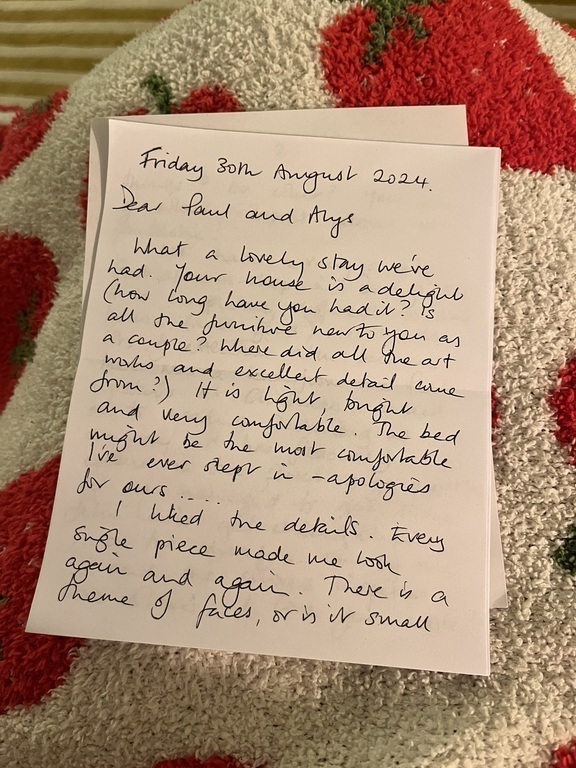 Friday 30th August 2024.
Dear Paul and Alys
What a lovely stay we've
had. Your house is a delight
(how long have you had it? Is
all the furniture new to you as
a couple? Where did all the art
works and excellent detail come
from?) It is light, bright
and very comfortable. The bed
might be the most comfortable
I've ever slept in - apologies
for ours.....
I liked the details. Every
single piece made me look
again and again. There is a
theme of faces, or is it small